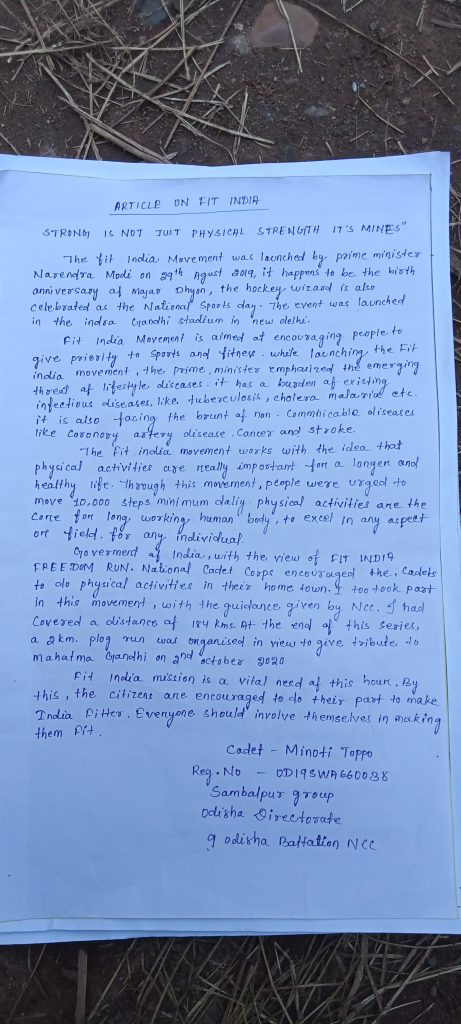 ARTICLE ON FIT INDIA
STRONG IS NOT JUST PHYSICAL STRENGTH IT'S MINES"
The fit India Movement was launched by prime minister
Narendra Modi on 29th Agust 2019, it happens to be the birth
anniversary of Majar Dhyan, the hockey wizard is also
celebrated as the National Sports day. The event was launched
in the indra Gandhi stadium in new delhi.
Fit India Movement is aimed at encouraging people to
give priority to sports and fitness. while launching the Fit
india movement, the prime, minister emphasized the emerging
threat of lifestyle diseases. it has a burden of existing
infectious diseases, like, tuberculosis, cholera malaria etc.
it is also facing the brunt of non-Commnicable diseases
like coronory artery disease. Cancer and stroke.
The Fit india movement works with the idea that
physical activities are really important for a longer and
healthy life. Through this movement, people were urged to
move 10,000 steps minimum dalig. physical activities are the
core for long, working, human body, to excel in any aspect
or field. for any, individual.
Goverment of India, with the view of FIT INDIA
FREEDOM RUN. National Cadet Corps encouraged the, Cadets
to do physical activities in their home town. I too took part
in this movement, with the guidance given by Ncc. I had
Covered a distance of 184 kms. At the end of this series,
a 2km. plog run was organised in view to give tribute to
mahatma Gandhi on 2nd october 2020
Fit India mission is a vital need of this hour. By
this, the citizens are encouraged to do their part to make
India Fitter. Everyone should involve themselves in making
them Fit.
Cadet - Minoti Toppo
Reg. No - OD19SWA660038
Sambalpur group
Odisha Directorate
9 odisha Battalion NCC